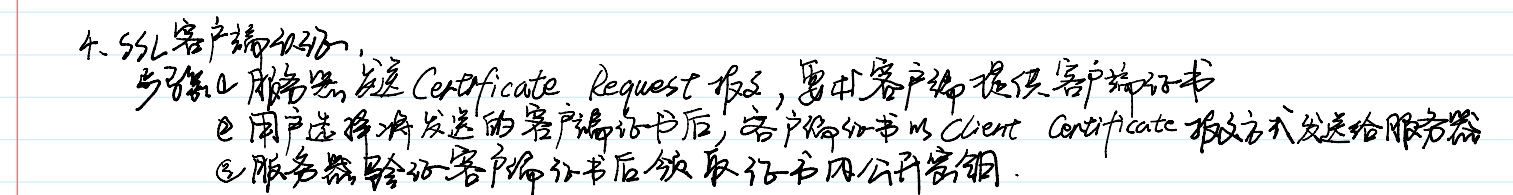 4、SSL客户端认证,
步骤① 服务器发送 Certificate Request 报文,要求客户端提供客户端证书
② 用户选择将发送的客户端证书后,客户端证书以 Client Certificate 报文方式发送给服务器
③ 服务器验证客户端证书后领取证书内公开密钥.